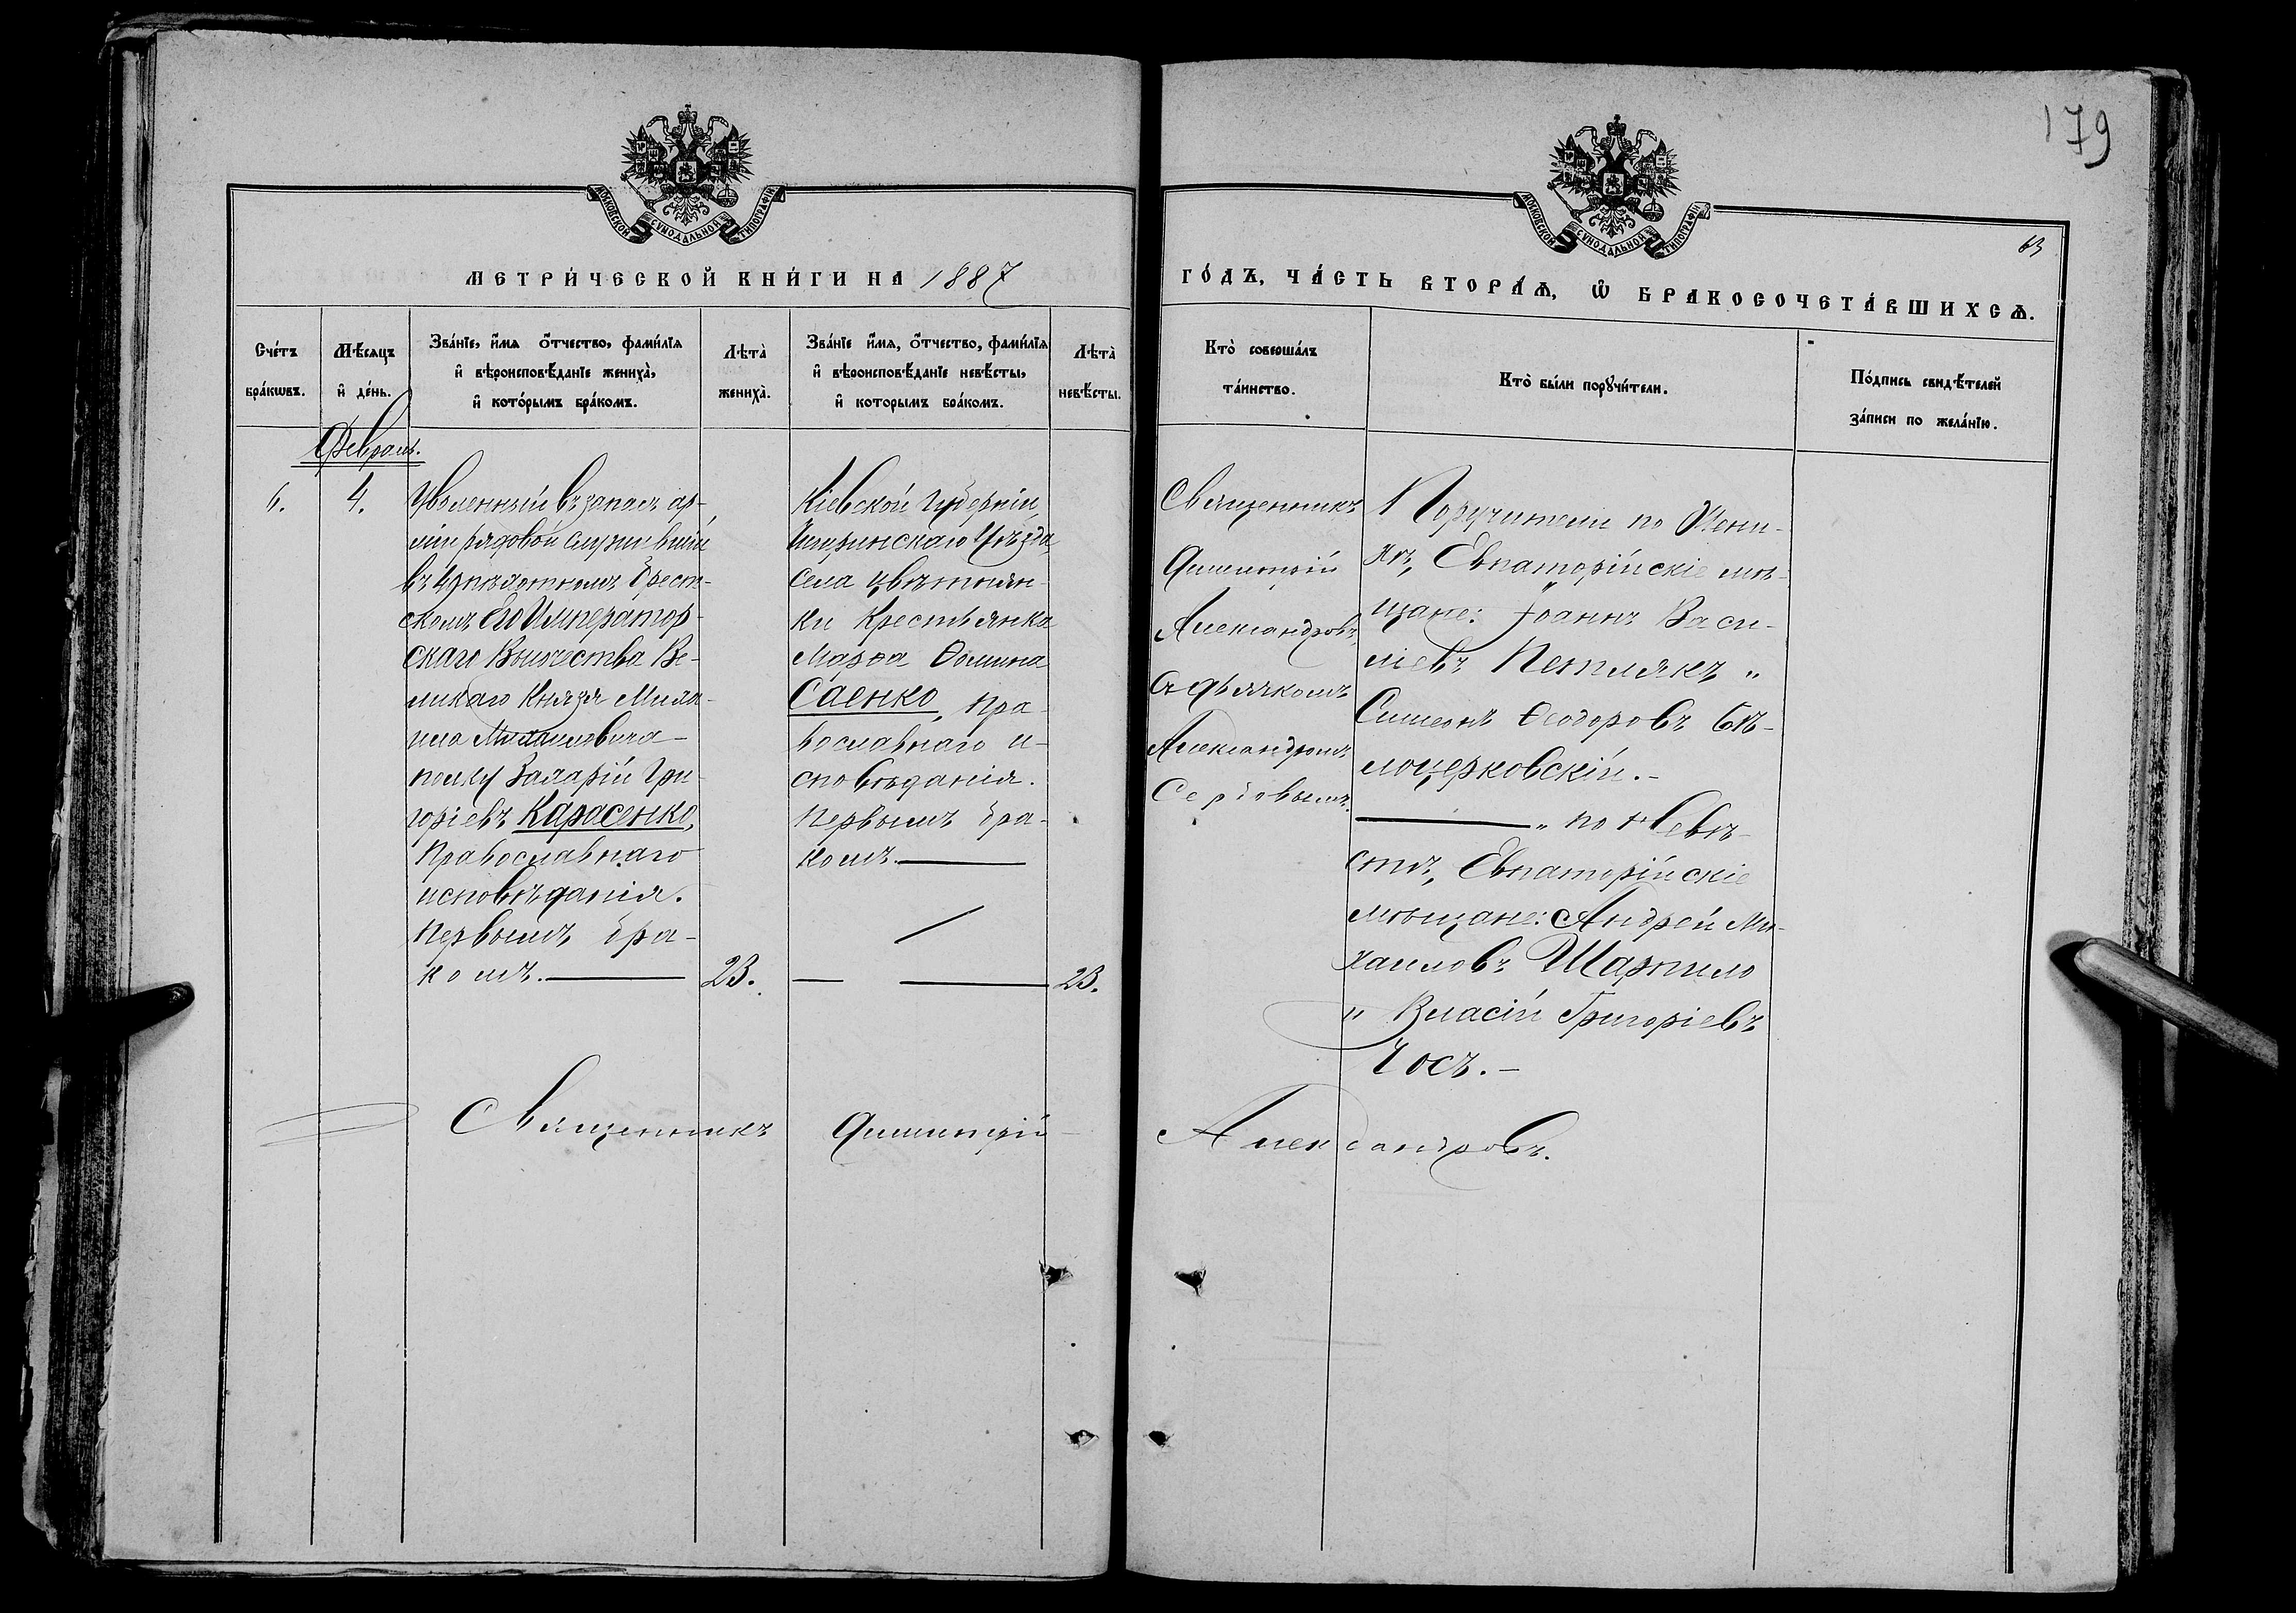 179
63
МОСКОВСКОЙ СѴНОДАЛЬНОЙ ТИПОГРАФІИ
МОСКОВСКОЙ СѴНОДАЛЬНОЙ ТИПОГРАФІИ
МЕТРИ́ЧЕСКОЙ КНИ́ГИ НА 1887
ГО́ДЪ, ЧА́СТЬ ВТОРА́Ѧ, Ѽ БРАКОСОЧЕТА́ВШИХСѦ.
Сче́тъ
бра́кѡвъ.
Мѣ́сяцъ
и҆ де́нь.
Зва́нїе, и҆́мѧ ѻ҆́тчество, фами́лїѧ
и҆ вѣроисповѣ́данїе жениха̀,
и҆ кото́рымъ бра́комъ.
Лѣта̀
жениха̀.
Зва́нїе и҆́мѧ, ѻ҆́тчество, фами́лїѧ
и҆ вѣроисповѣ́данїе невѣ́сты,
и҆ которымъ бра́комъ.
Лѣта̀
невѣ́сты.
Кто̀ соверша́лъ
та́инство.
Кто̀ бы́ли порꙋчи́тели.
По́дпись свидѣ́телей
за́писи по жела́нїю.
Февраль.
6.
4.
Уволенный въ запасъ ар-
міи рядовой служившій
въ 49 пѣхотномъ Брест-
скомъ Его Император-
скаго Высочества Ве-
ликаго Князя Миха-
ила Михаиловича
полку Захарій Гри-
горіевъ Карасенко,
Православнаго
исповѣданія.
Первымъ бра-
комъ.
23.
Кіевской Губерніи,
Чигиринскаго Уѣзда
Села Цвѣтнян-
ки Крестьянка
Марѳа Ѳомина
Саенко, Пра-
вославнаго и-
сповѣданія.
Первымъ бра-
комъ.
23.
Священникъ
Димитрій
Александровъ
съ дьячкомъ
Александромъ
Сербовымъ.
Поручители по Жени-
хѣ, Евпаторійскіе мѣ-
щане: Іоаннъ Васи-
ліевъ Петлякъ "
Симеонъ Ѳеодоровъ Бѣ-
лоцерковскій. -
" по Невѣ-
стѣ, Евпаторійскіе
мѣщане: Андрей Ми-
хаиловъ Шарпило
" Власій Григоріевъ
Чосъ. -
Священникъ Димитрій Александровъ.